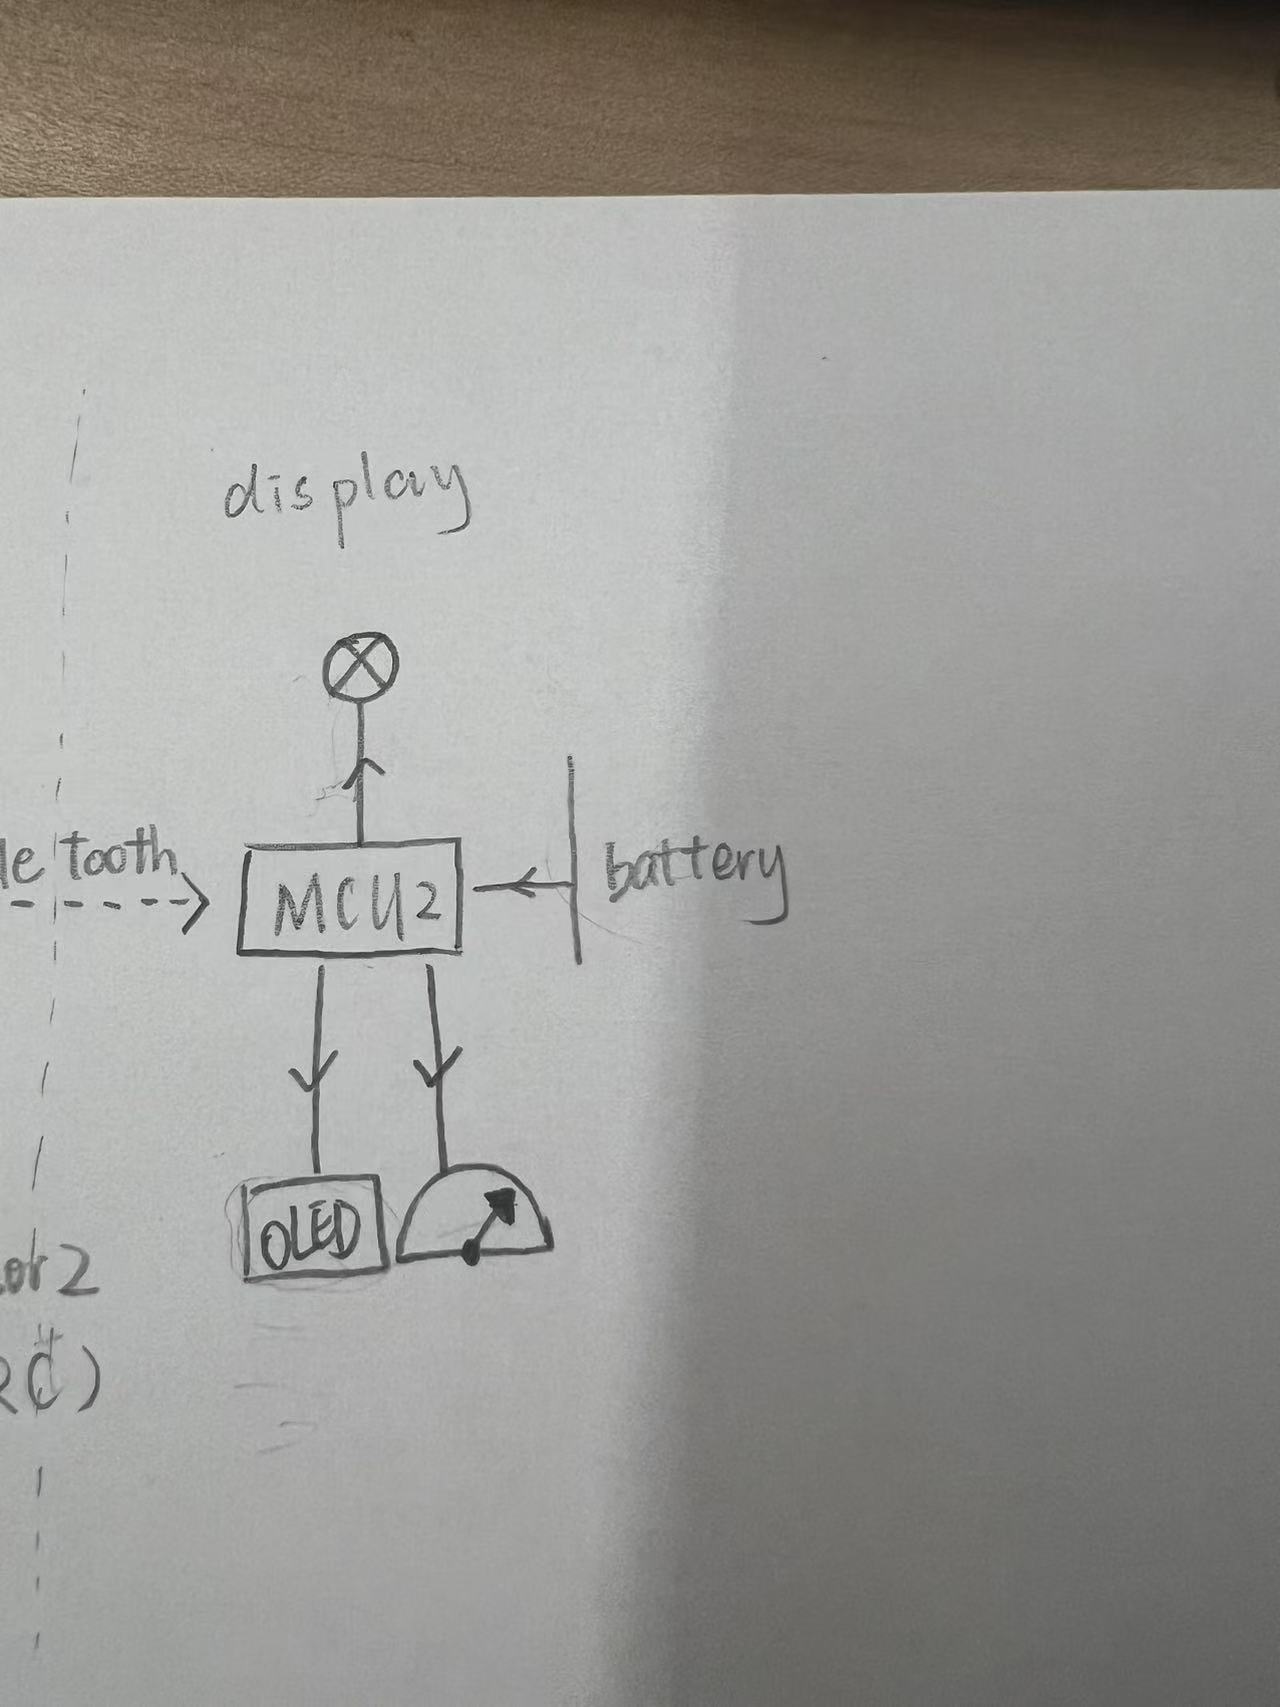 display
le tooth
MCU2
battery
OLED
or 2